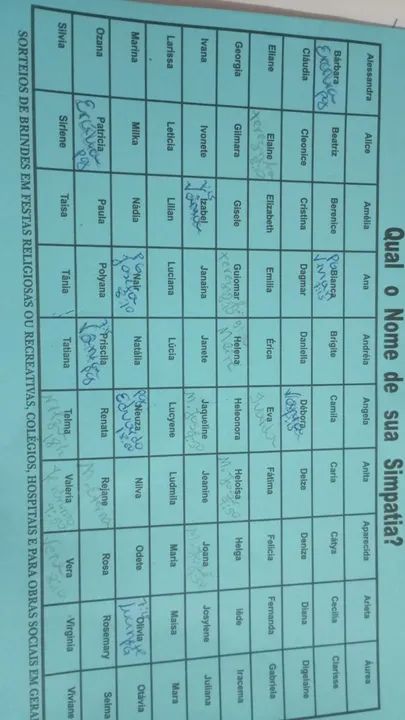 Qual o Nome de sua Simpatia?
Alessandra Alice Amélia Ana Andréia Angela Anita Aparecida Arieta Áurea
Bárbara Beatriz Berenice Bianca Brigite Camila Carla Cátya Cecília Clarisse
Cláudia Cleonice Cristina Dagmar Daniella Débora Deize Denize Diana Digelaine
Eliane Elaine Elizabeth Emilia Érica Eva Fátima Felícia Fernanda Gabriela
Georgia Gilmara Gisele Guiomar Helena Heleonora Heloisa Helga Iêde Iracema
Ivana Ivonete Izabel Janaina Janete Jaqueline Jeanine Joana Josylene Juliana
Larissa Letícia Lilian Luciana Lúcia Lucyene Ludmila Maria Maisa Mara
Marina Milka Nádia Nair Natália Neuza Nilva Odete Olívia Otávia
Ozana Patrícia Paula Polyana Priscila Renata Rejane Rosa Rosemary Selma
Silvia Sirlene Taisa Tânia Tatiana Telma Valeria Vera Virginia Viviane
SORTEIOS DE BRINDES EM FESTAS RELIGIOSAS OU RECREATIVAS, COLÉGIOS, HOSPITAIS E PARA OBRAS SOCIAIS EM GERAL